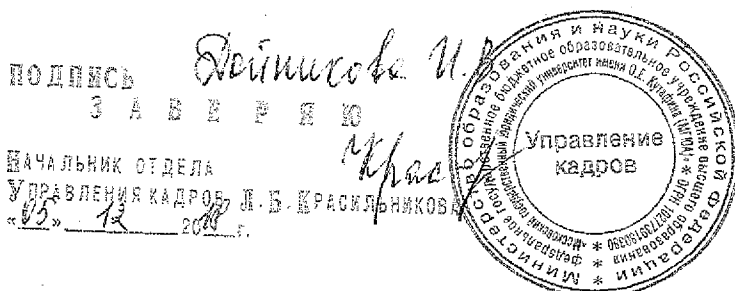 ПОДПИСЬ Дойникова И.В.
ЗАВЕРЯЮ
НАЧАЛЬНИК ОТДЕЛА
УПРАВЛЕНИЯ КАДРОВ Л.Б. КРАСИЛЬНИКОВА
«05» 12 2018 г.
Министерство образования и науки Российской Федерации *
федеральное государственное бюджетное образовательное учреждение высшего образования *
«Московский государственный юридический университет имени О.Е. Кутафина (МГЮА)» * ОГРН
Управление
кадров